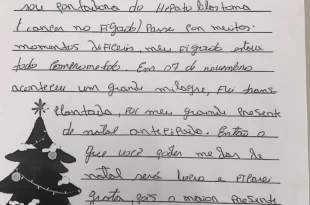 sou portadora do Hepato blastoma
(cancer no Figado) Passei por muitos
momentos dificeis, meu Figado estava
todo comprometado. Em 07 de novembro
aconteceu um grande milagre, Fui trans
plantada, Foi meu grande presente
de natal antecipado. Então o
que você poder me dar de
natal será lucro e Ficarei
grata, pois o maior presente